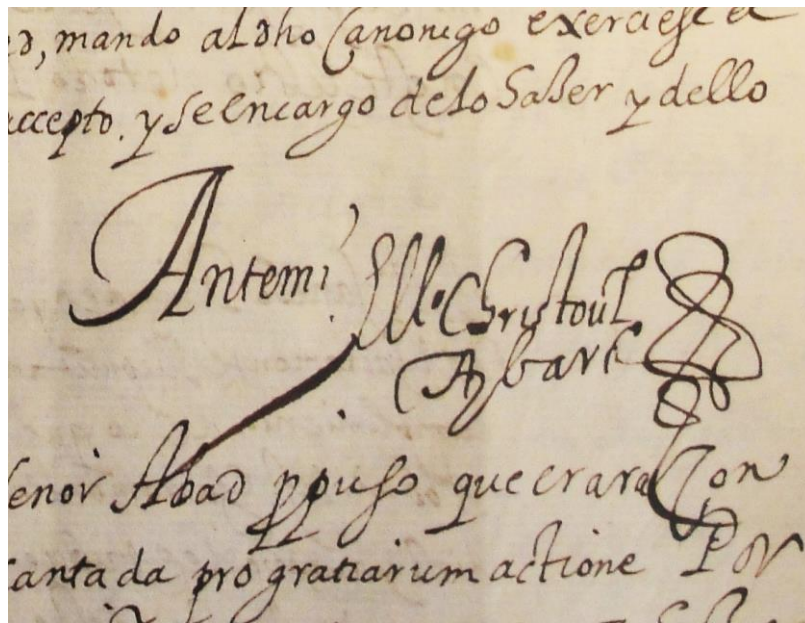 mando al dho Canonigo exerciese el
accepto. y se encargo de lo Saber y dello
Antemi
Mº Christoual
Albarez
señor Abad ppuso que era raçon
cantada pro gratiarum actione Por